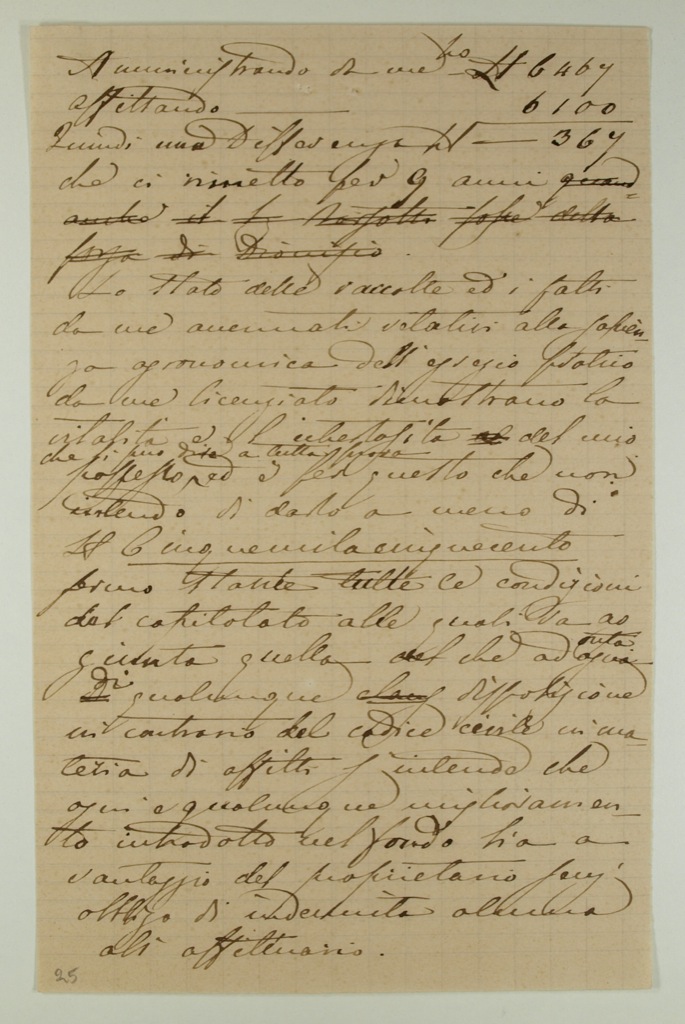 Amministrando da me ho ₶ 6467
affittando 6100
Quindi una Differenza ₶ — 367
che ci rimetto per 9 anni quand
anche il fosse della
forza di Dionisio.
Lo stato delle raccolte ed i fatti
da me accennati relativi alla sapien-
za agronomica dell'egregio
da me licenziato dimostrano la
vitalità e l'ubertosità del mio
che si può dire a tutta prova
possesso, ed è per questo che non
intendo di darlo a meno di
₶ Cinquemilacinquecento
fermo stante tutte le condizioni
del capitolato alle quali va ag
giunta quella che ad onta
di qualunque disposizione
in contrario del codice civile in ma-
teria di affitti s'intende che
ogni e qualunque miglioramen-
to introdotto nel fondo sia a
vantaggio del proprietario senz'
obbligo di indennità alcuna
all'affittuario.
25